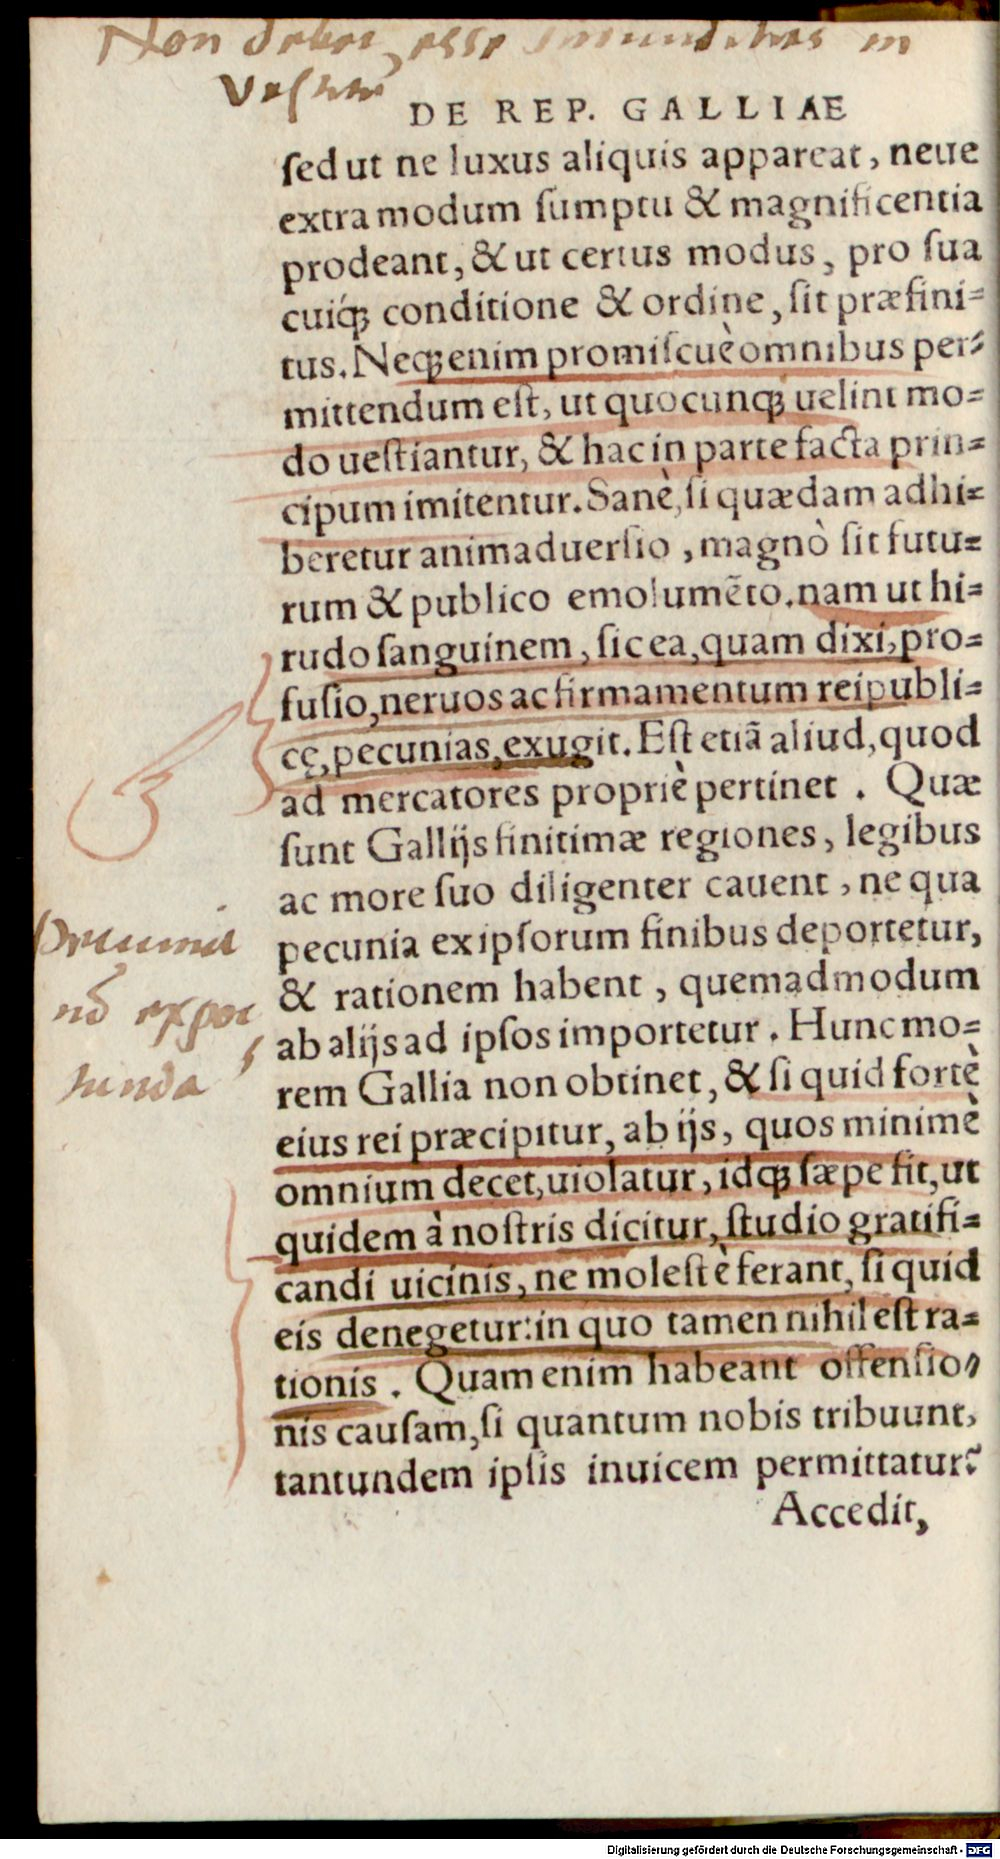 Non debet esse in
DE REP. GALLIAE
ſed ut ne luxus aliquis appareat, neue
extra modum ſumptu & magnificentia
prodeant, & ut certus modus, pro ſua
cuiq́ꝫ conditione & ordine, ſit præfini-
tus. Neqꝫ enim promiſcuè omnibus per-
mittendum eſt, ut quocunqꝫ uelint mo-
do ueſtiantur, & hac in parte facta prin-
cipum imitentur. Sanè, ſi quædam adhi-
beretur animaduerſio, magnò ſit futu-
rum & publico emolumẽto. nam ut hi-
rudo ſanguinem, ſic ea, quam dixi, pro-
fuſio, neruos ac firmamentum reipubli-
cę, pecunias, exugit. Eſt etiã aliud, quod
ad mercatores propriè pertinet. Quæ
ſunt Gallijs finitimæ regiones, legibus
ac more ſuo diligenter cauent, ne qua
pecunia ex ipſorum finibus deportetur,
& rationem habent, quemadmodum
ab alijs ad ipſos importetur. Hunc mo-
rem Gallia non obtinet, & ſi quid fortè
eius rei præcipitur, ab ijs, quos minimè
omnium decet, uiolatur, idqꝫ ſæpe fit, ut
quidem à noſtris dicitur, ſtudio gratifi-
candi uicinis, ne moleſtè ferant, ſi quid
eis denegetur: in quo tamen nihil eſt ra-
tionis. Quam enim habeant offenſio-
nis cauſam, ſi quantum nobis tribuunt,
tantundem ipſis inuicem permittatur?
Accedit,
pecunia
nõ expor
tanda
Digitalisierung gefördert durch die Deutsche Forschungsgemeinschaft - DFG